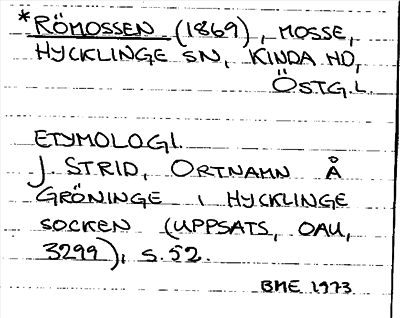 *RÖMOSSEN (1869), MOSSE,
HYCKLINGE SN, KINDA HD,
ÖSTG.L.
ETYMOLOGI.
J STRID, ORTNAMN Å
GRÖNINGE I HYCKLINGE
SOCKEN (UPPSATS, OAU,
3299), S. 52.
BME 1973